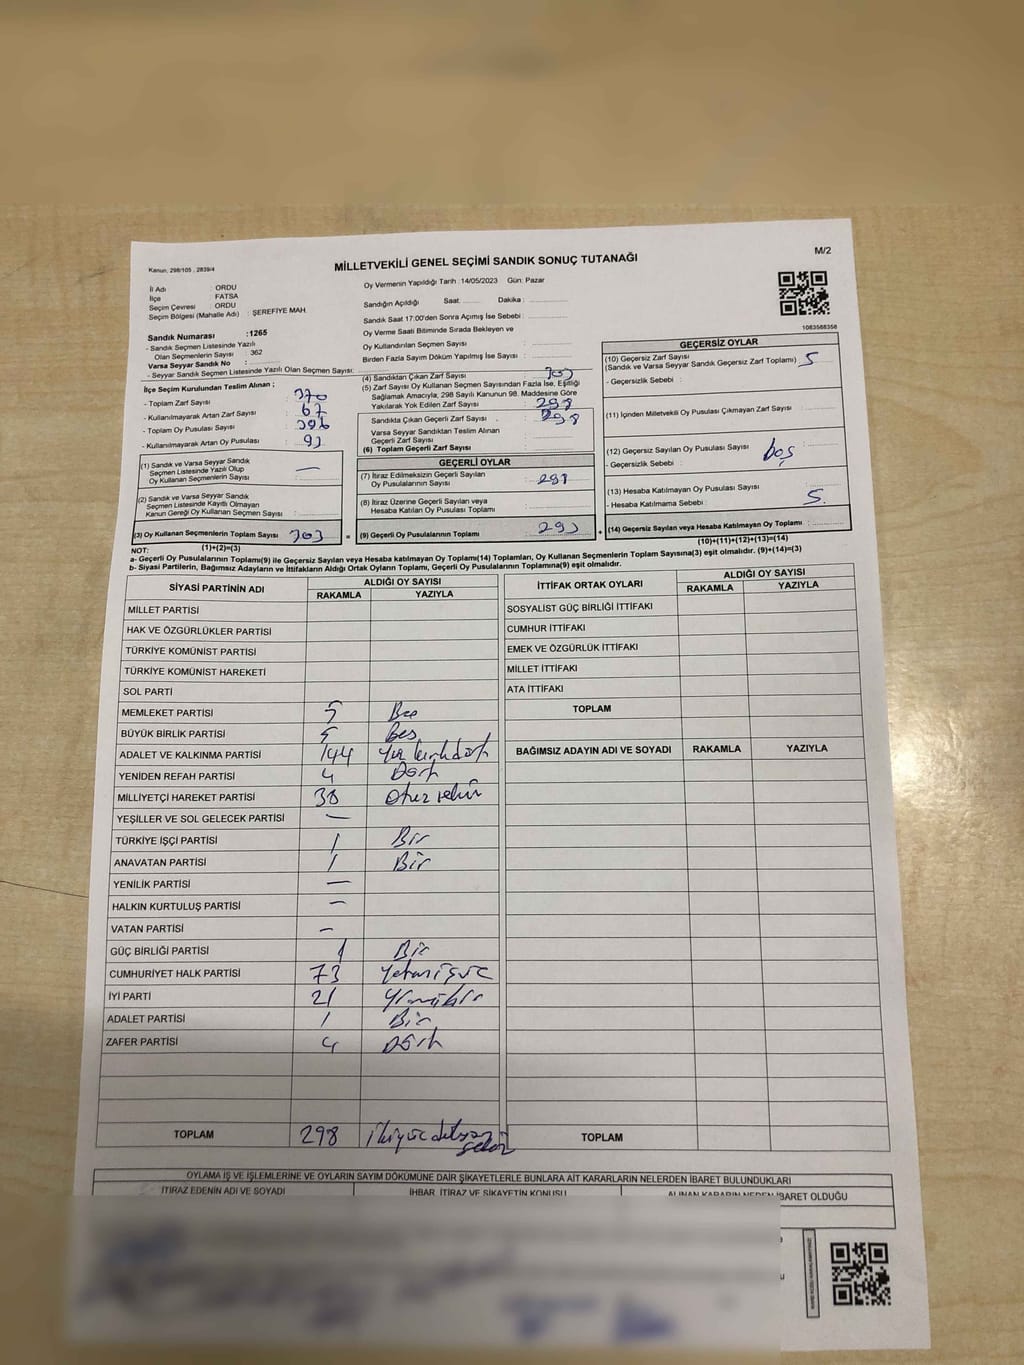 Kanun, 298/105 , 2839/4
MİLLETVEKİLİ GENEL SEÇİMİ SANDIK SONUÇ TUTANAĞI
M/2
İl Adı : ORDU
İlçe : FATSA
Seçim Çevresi : ORDU
Seçim Bölgesi (Mahalle Adı) : ŞEREFİYE MAH
Sandık Numarası : 1265
- Sandık Seçmen Listesinde Yazılı
Olan Seçmenlerin Sayısı : 362
Varsa Seyyar Sandık No :
- Seyyar Sandık Seçmen Listesinde Yazılı Olan Seçmen Sayısı:
Oy Vermenin Yapıldığı Tarih : 14/05/2023 Gün: Pazar
Sandığın Açıldığı Saat: Dakika :
Sandık Saat 17:00'den Sonra Açımış İse Sebebi :
Oy Verme Saati Bitiminde Sırada Bekleyen ve
Oy Kullandırılan Seçmen Sayısı :
Birden Fazla Sayım Döküm Yapılmış İse Sayısı :
1083568358
İlçe Seçim Kurulundan Teslim Alınan ;
- Toplam Zarf Sayısı : 370
- Kullanılmayarak Artan Zarf Sayısı : 67
- Toplam Oy Pusulası Sayısı :
- Kullanılmayarak Artan Oy Pusulası : 93
(1) Sandık ve Varsa Seyyar Sandık
Seçmen Listesinde Yazılı Olup
Oy Kullanan Seçmenlerin Sayısı : —
(2) Sandık ve Varsa Seyyar Sandık
Seçmen Listesinde Kayıtlı Olmayan
Kanun Gereği Oy Kullanan Seçmen Sayısı :
(3) Oy Kullanan Seçmenlerin Toplam Sayısı 303
(1)+(2)=(3)
(4) Sandıktan Çıkan Zarf Sayısı : 303
(5) Zarf Sayısı Oy Kullanan Seçmen Sayısından Fazla İse, Eşitliği
Sağlamak Amacıyla, 298 Sayılı Kanunun 98. Maddesine Göre
Yakılarak Yok Edilen Zarf Sayısı : 298
Sandıkta Çıkan Geçerli Zarf Sayısı : 298
Varsa Seyyar Sandıktan Teslim Alınan
Geçerli Zarf Sayısı :
(6) Toplam Geçerli Zarf Sayısı :
GEÇERLİ OYLAR
(7) İtiraz Edilmeksizin Geçerli Sayılan
Oy Pusulalarının Sayısı : 298
(8) İtiraz Üzerine Geçerli Sayılan veya
Hesaba Katılan Oy Pusulası Toplamı :
(9) Geçerli Oy Pusulalarının Toplamı :
GEÇERSİZ OYLAR
(10) Geçersiz Zarf Sayısı
(Sandık ve Varsa Seyyar Sandık Geçersiz Zarf Toplamı) : 5
- Geçersizlik Sebebi :
(11) İçinden Milletvekili Oy Pusulası Çıkmayan Zarf Sayısı :
(12) Geçersiz Sayılan Oy Pusulası Sayısı :
- Geçersizlik Sebebi : boş
(13) Hesaba Katılmayan Oy Pusulası Sayısı :
- Hesaba Katılmama Sebebi : 5.
(14) Geçersiz Sayılan veya Hesaba Katılmayan Oy Toplamı :
(10)+(11)+(12)+(13)=(14)
NOT:
a- Geçerli Oy Pusulalarının Toplamı(9) ile Geçersiz Sayılan veya Hesaba katılmayan Oy Toplamı(14) Toplamları, Oy Kullanan Seçmenlerin Toplam Sayısına(3) eşit olmalıdır. (9)+(14)=(3)
b- Siyasi Partilerin, Bağımsız Adayların ve İttifakların Aldığı Ortak Oyların Toplamı, Geçerli Oy Pusulalarının Toplamına(9) eşit olmalıdır.
SİYASİ PARTİNİN ADI ALDIĞI OY SAYISI
RAKAMLA YAZIYLA
MİLLET PARTİSİ
HAK VE ÖZGÜRLÜKLER PARTİSİ
TÜRKİYE KOMÜNİST PARTİSİ
TÜRKİYE KOMÜNİST HAREKETİ
SOL PARTİ
MEMLEKET PARTİSİ 5
BÜYÜK BİRLİK PARTİSİ 5 Beş
ADALET VE KALKINMA PARTİSİ 144 Yüz kırkdört
YENİDEN REFAH PARTİSİ 4 Dört
MİLLİYETÇİ HAREKET PARTİSİ 38 Otuz sekiz
YEŞİLLER VE SOL GELECEK PARTİSİ —
TÜRKİYE İŞÇİ PARTİSİ 1 Bir
ANAVATAN PARTİSİ 1 Bir
YENİLİK PARTİSİ —
HALKIN KURTULUŞ PARTİSİ —
VATAN PARTİSİ —
GÜÇ BİRLİĞİ PARTİSİ 1 Bir
CUMHURİYET HALK PARTİSİ 73 Yetmişüç
İYİ PARTİ 21 Yirmibir
ADALET PARTİSİ 1 Bir
ZAFER PARTİSİ 4 Dört
TOPLAM 298 ikiyüz doksan sekiz
İTTİFAK ORTAK OYLARI ALDIĞI OY SAYISI
RAKAMLA YAZIYLA
SOSYALİST GÜÇ BİRLİĞİ İTTİFAKI
CUMHUR İTTİFAKI
EMEK VE ÖZGÜRLÜK İTTİFAKI
MİLLET İTTİFAKI
ATA İTTİFAKI
TOPLAM
BAĞIMSIZ ADAYIN ADI VE SOYADI RAKAMLA YAZIYLA
TOPLAM
OYLAMA İŞ VE İŞLEMLERİNE VE OYLARIN SAYIM DÖKÜMÜNE DAİR ŞİKAYETLERLE BUNLARA AİT KARARLARIN NELERDEN İBARET BULUNDUKLARI
İTİRAZ EDENİN ADI VE SOYADI İHBAR, İTİRAZ VE ŞİKAYETİN KONUSU ALINAN KARARIN NEDEN İBARET OLDUĞU